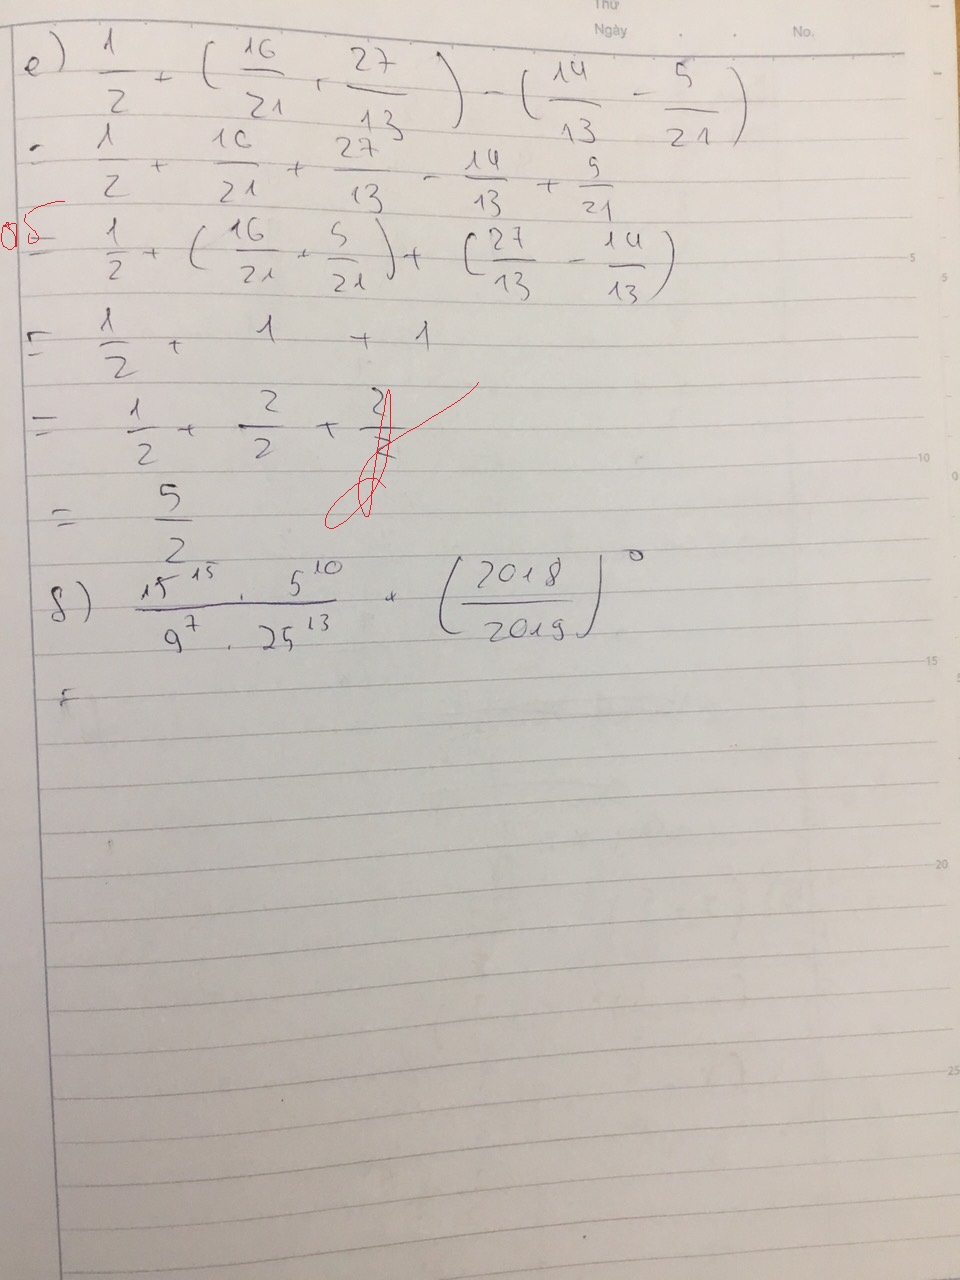 Thứ
Ngày . . No.
e) 1/2 + (16/21 + 27/13) - (14/13 - 5/21)
= 1/2 + 16/21 + 27/13 - 14/13 + 5/21
05
= 1/2 + (16/21 + 5/21) + (27/13 - 14/13)
5
= 1/2 + 1 + 1
= 1/2 + 2/2 + 2/2
10
= 5/2
f) 15^15 . 5^10 / 9^7 . 25^13 + (2018/2019)^0
15
=
20
25